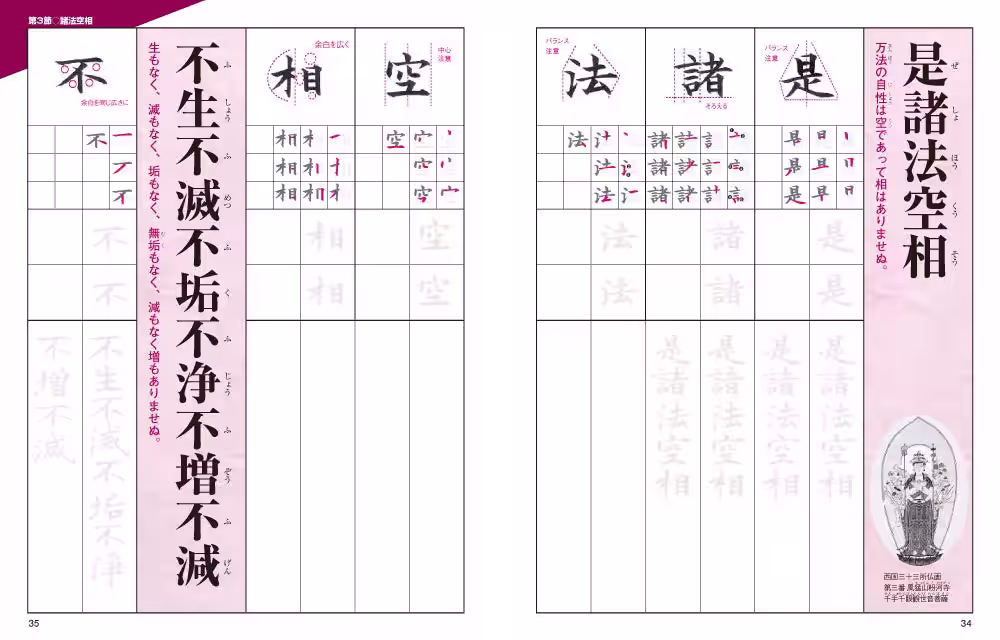 第3節○諸法空相
是諸法空相
ぜ しょ ほう くう そう
万法の自性は空であって相はありませぬ。
西国三十三所仏画
第三番 風猛山粉河寺
千手千眼観世音菩薩
バランス注意
是
是
是
是
是
是
諸
そろえる
諸
諸
諸
諸
諸
バランス注意
法
法
法
法
法
法
是諸法空相
是諸法空相
是諸法空相
是諸法空相
34
中心注意
空
空
空
空
空
空
余白を広く
相
相
相
相
相
相
不生不滅不垢不浄不増不減
ふ しょう ふ めつ ふ く ふ じょう ふ ぞう ふ げん
生もなく、滅もなく、垢もなく、無垢もなく、減もなく増もありませぬ。
不
余白を同じ広さに
不
不
不
不
不
不生不滅不垢不浄
不増不減
35